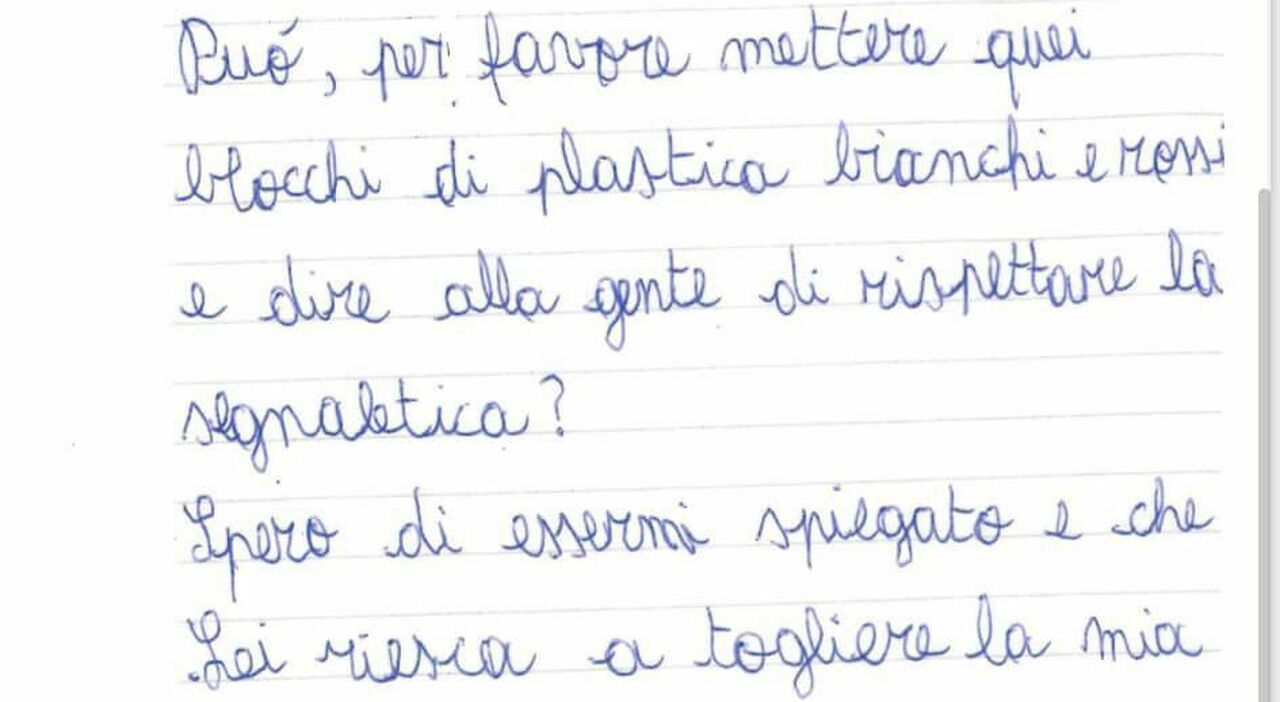 Puó, per favore mettere quei
blocchi di plastica bianchi e rossi
e dire alla gente di rispettare la
segnaletica?
Spero di essermi spiegato e che
Lei riesca a togliere la mia